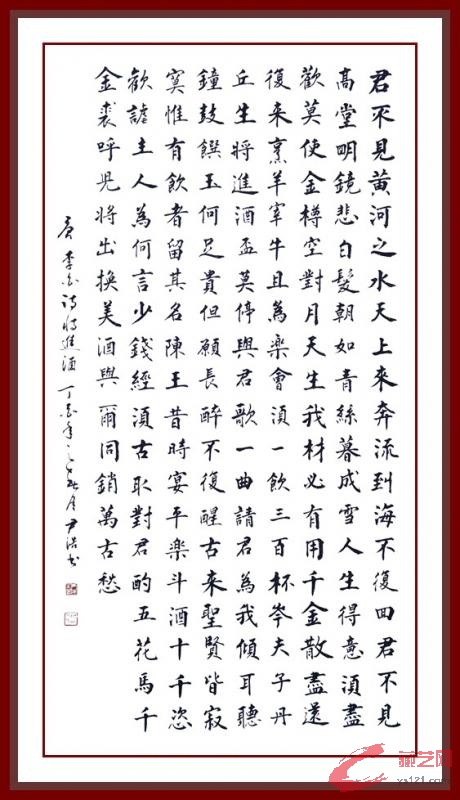 君不見黃河之水天上來奔流到海不復回君不見
高堂明鏡悲白髮朝如青絲暮成雪人生得意須盡
歡莫使金樽空對月天生我材必有用千金散盡還
復来烹羊宰牛且為楽會須一飲三百杯岑夫子丹
丘生將進酒盃莫停與君歌一曲請君為我傾耳聽
鐘鼓饌玉何足貴但願長醉不復醒古来聖賢皆寂
寞惟有飲者留其名陳王昔時宴平楽斗酒十千恣
歡謔主人為何言少錢經須古取對君酌五花馬千
金裘呼兒將出換美酒與爾同銷萬古愁
唐李白詩將進酒丁酉年之月尹浩書
藏艺网